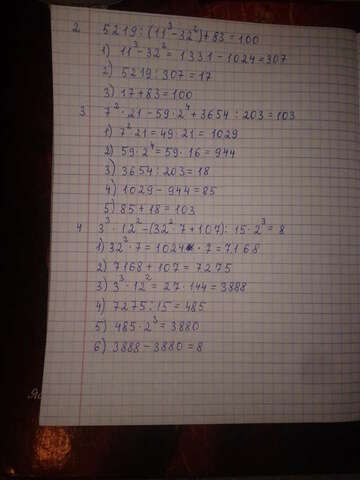 2 5219 : (11³-32²)+83=100
1) 11³-32²= 1331-1024=307
2) 5219:307=17
3) 17+83=100
3. 7²·21-59·2⁴+3654:203=103
1) 7²21=49·21= 1029
2) 59·2⁴=59·16=944
3) 3654:203=18
4) 1029-944=85
5) 85+18=103
4 3³·12²-(32²·7+107):15·2³=8
1) 32²·7=1024·7=7168
2) 7168+107=7275
3) 3³·12²=27·144=3888
4) 7275:15=485
5) 485·2³=3880
6) 3888-3880=8